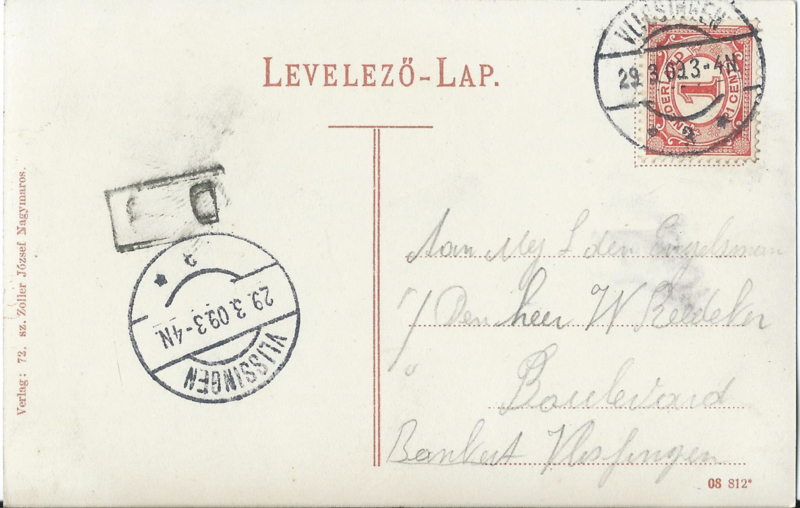 LEVELEZŐ-LAP.
VLISSINGEN
29.3.09.3-4N
2
NEDERLAND
1
1 CENT
Verlag: 72. sz. Zoller József Nagymaros.
2
29.3.09.3-4N
VLISSINGEN
Aan Mej L den Engelsman
p/ Den heer W
"
Boulevard
Bankert Vlissingen
08 812*